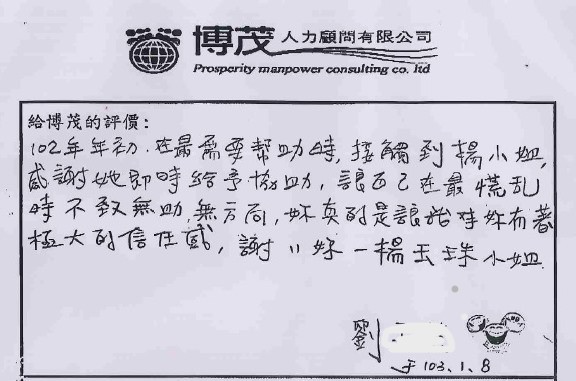 博茂人力顧問有限公司
Prosperity manpower consulting co. ltd
給博茂的評價：
102年年初，在最需要幫助時，接觸到楊小姐，
感謝她即時給予協助，讓自己在最慌乱
時不致無助，無方向，妳真的是讓我對妳有著
極大的信任感，謝〃妳－楊玉珠小姐.
劉
于103、1、8